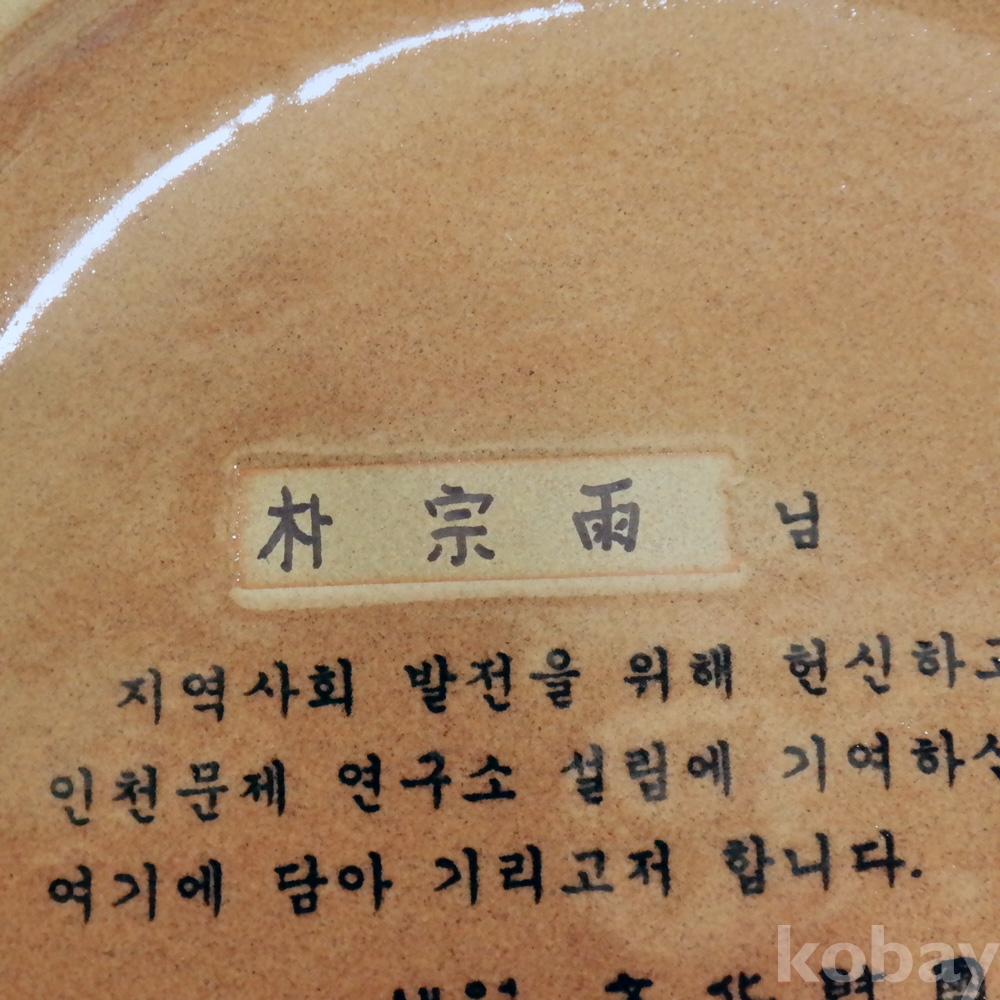 朴 宗 雨 님
지역사회 발전을 위해 헌신하고
인천문제 연구소 설립에 기여하신
여기에 담아 기리고저 합니다.
kobay